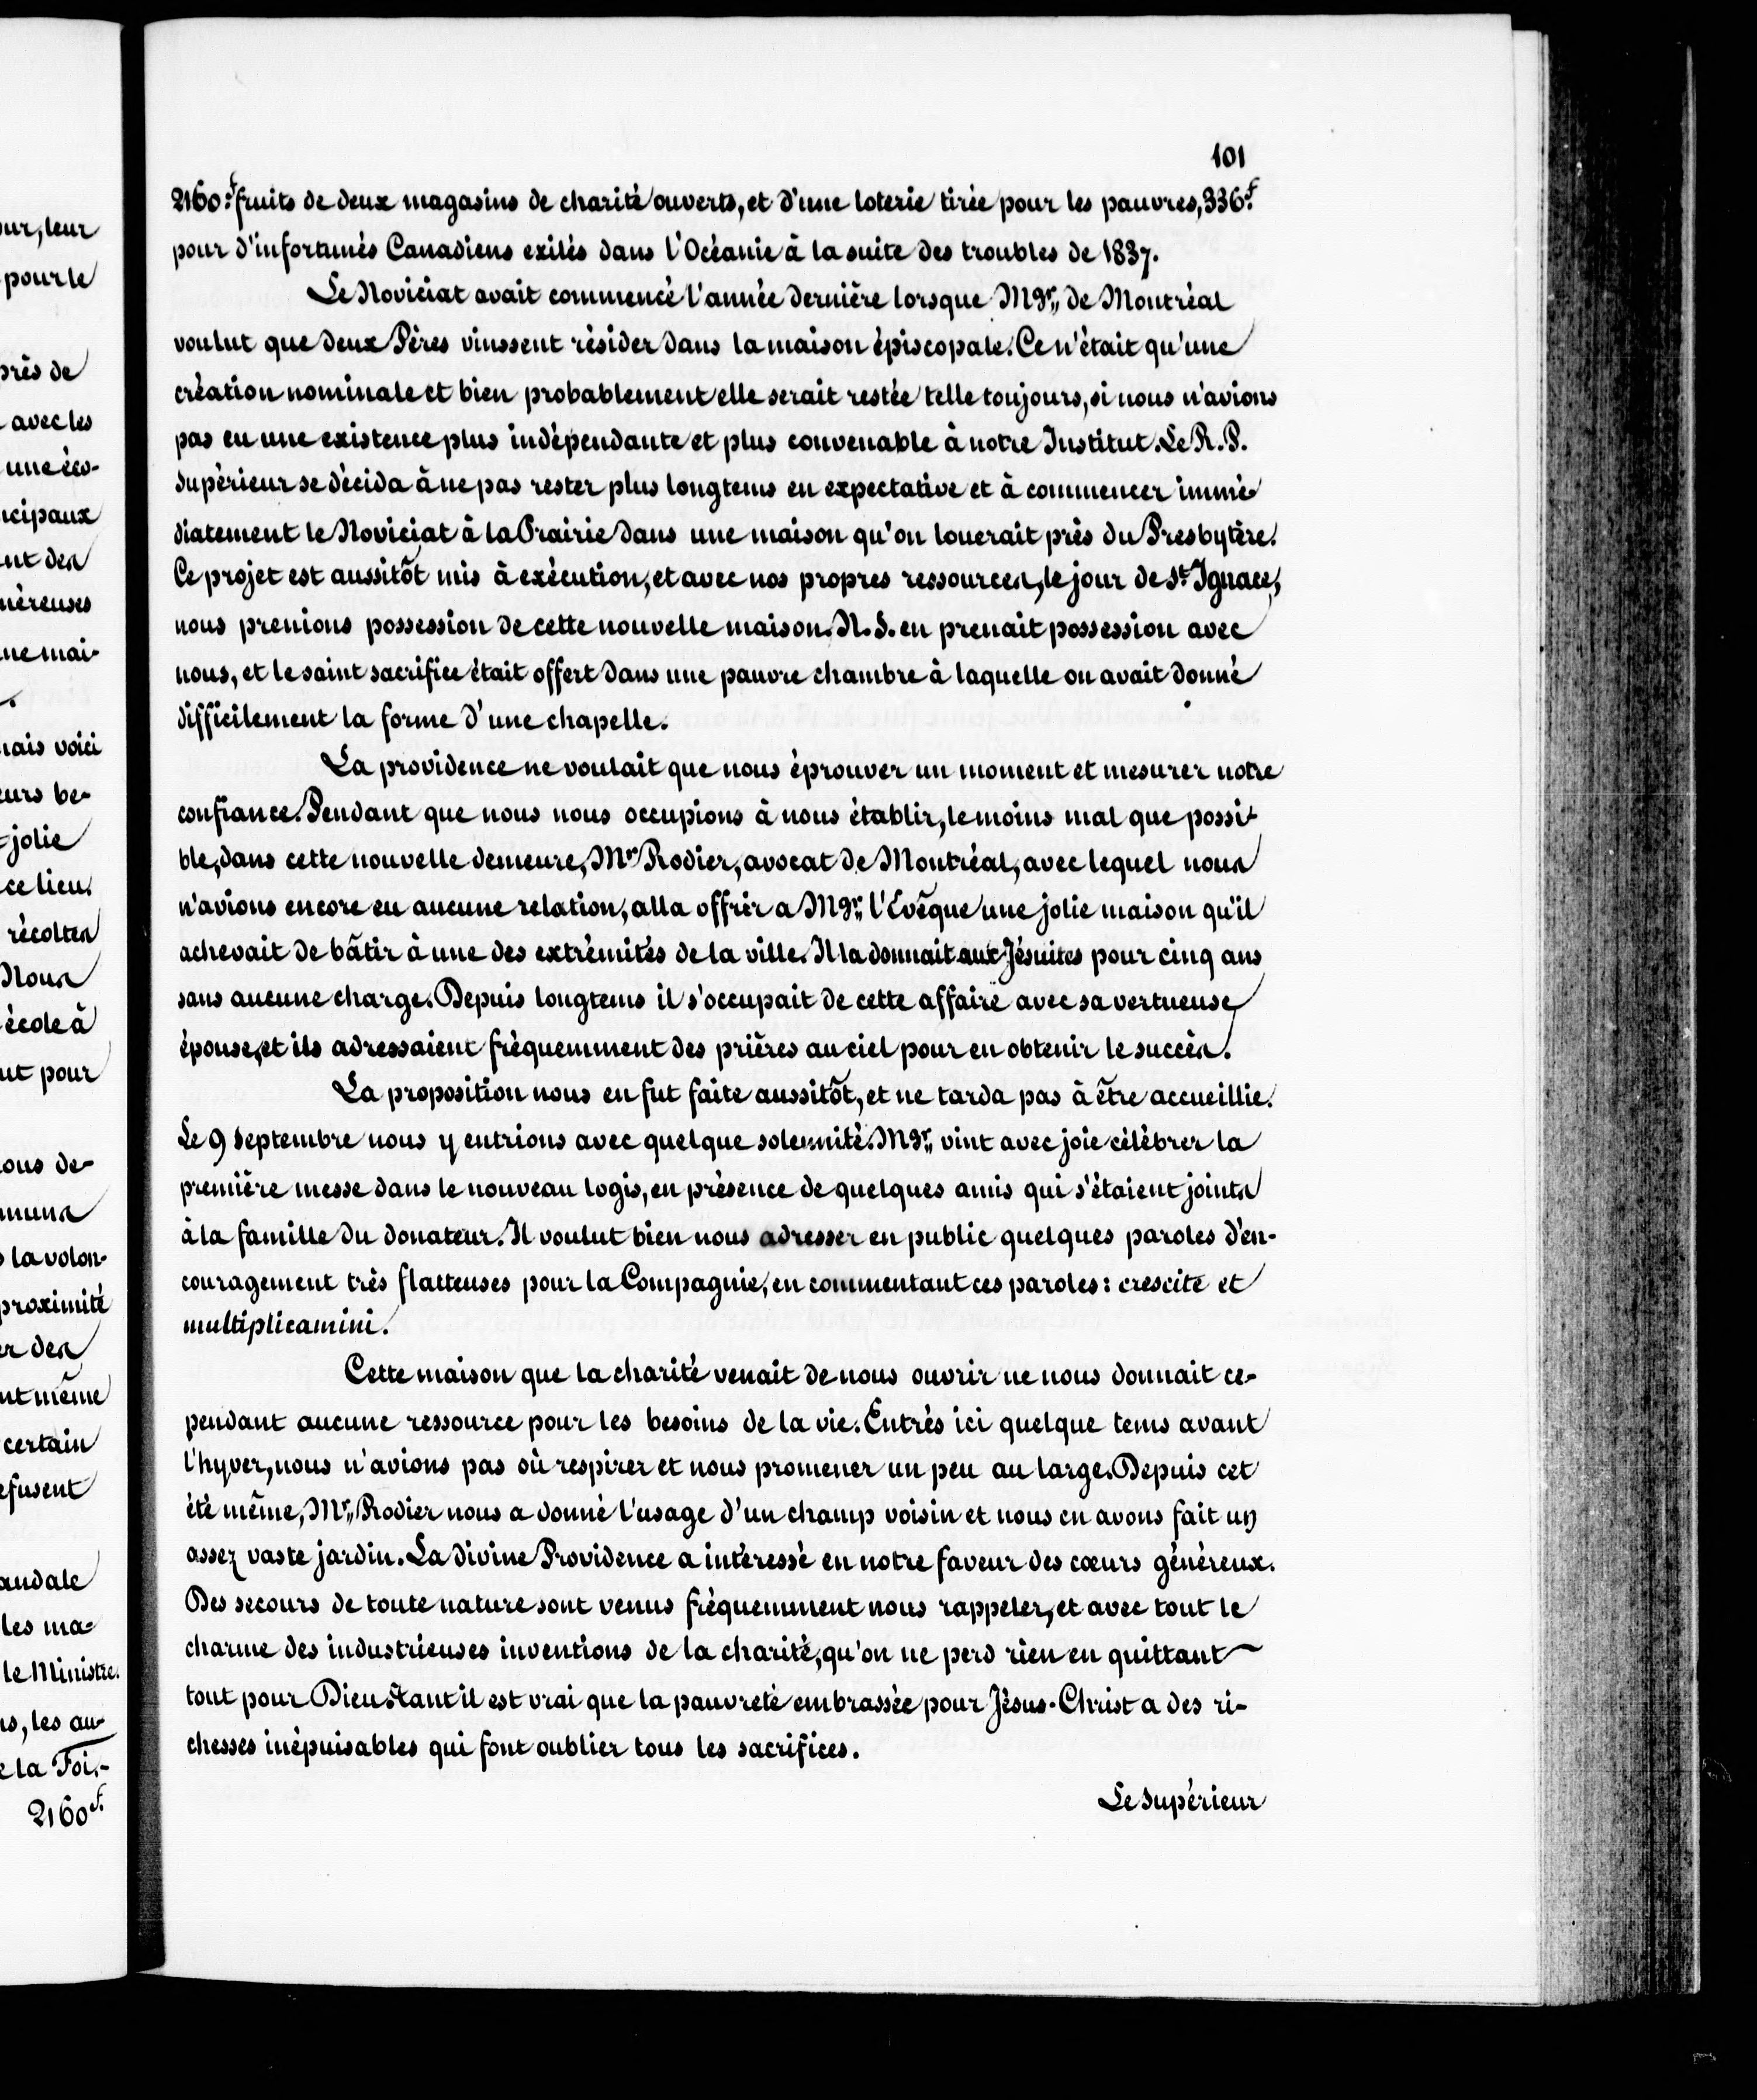 101
2160.f fruits de deux magasins de charité ouverts, et d'une loterie tirée pour les pauvres, 336.f
pour d'infortunés Canadiens exilés dans l'Océanie à la suite des troubles de 1837.
Le Noviciat avait commencé l'année dernière lorsque Mgr,, de Montréal
voulut que deux Pères vinssent résider dans la maison épiscopale. Ce n'était qu'une
création nominale et bien probablement elle serait restée telle toujours, si nous n'avions
pas eu une existence plus indépendante et plus convenable à notre Institut. Le R. P.
Supérieur se décida à ne pas rester plus longtems en expectative et à commencer immé-
diatement le Noviciat à la Prairie dans une maison qu'on louerait près du Presbytère.
Ce projet est aussitôt mis à exécution, et avec nos propres ressources, le jour de St. Ignace,
nous prenions possession de cette nouvelle maison. N. S. en prenait possession avec
nous, et le saint sacrifice était offert dans une pauvre chambre à laquelle on avait donné
difficilement la forme d'une chapelle.
La providence ne voulait que nous éprouver un moment et mesurer notre
confiance. Pendant que nous nous occupions à nous établir, le moins mal que possi-
ble, dans cette nouvelle demeure, Mr Rodier, avocat de Montréal, avec lequel nous
n'avions encore eu aucune relation, alla offrir a Mgr,, l'Evêque une jolie maison qu'il
achevait de bâtir à une des extrémités de la ville. Il la donnait aux Jésuites pour cinq ans
sans aucune charge. Depuis longtems il s'occupait de cette affaire avec sa vertueuse
épouse, et ils adressaient fréquemment des prières au ciel pour en obtenir le succès.
La proposition nous en fut faite aussitôt, et ne tarda pas à être accueillie.
Le 9 Septembre nous y entrions avec quelque solennité. Mgr,, vint avec joie célébrer la
première messe dans le nouveau logis, en présence de quelques amis qui s'étaient joints
à la famille du donateur. Il voulut bien nous adresser en public quelques paroles d'en-
couragement très flatteuses pour la Compagnie, en commentant ces paroles: crescite et
multiplicamini.
Cette maison que la charité venait de nous ouvrir ne nous donnait ce-
pendant aucune ressource pour les besoins de la vie. Entrés ici quelque tems avant
l'hyver, nous n'avions pas où respirer et nous promener un peu au large. Depuis cet
été même, Mr,, Rodier nous a donné l'usage d'un champ voisin et nous en avons fait un
assez vaste jardin. La divine Providence a intéressé en notre faveur des cœurs généreux.
Des secours de toute nature sont venus fréquemment nous rappeler, et avec tout le
charme des industrieuses inventions de la charité, qu'on ne perd rien en quittant
tout pour Dieu tant il est vrai que la pauvreté embrassée pour Jésus-Christ a des ri-
chesses inépuisables qui font oublier tous les sacrifices.
Le Supérieur
ur, leur
pour le
près de
avec les
une éco-
ncipaux
nt des
néreuses
ne mai-
nais voici
eurs be-
jolie
ce lieu.
récoltes
Nous
école à
ut pour
ous de-
muns
la volon-
proximité
er des
nt même
certain
efusent
andale
les ma-
le Ministre.
ns, les au-
e la Foi,-
2160.f